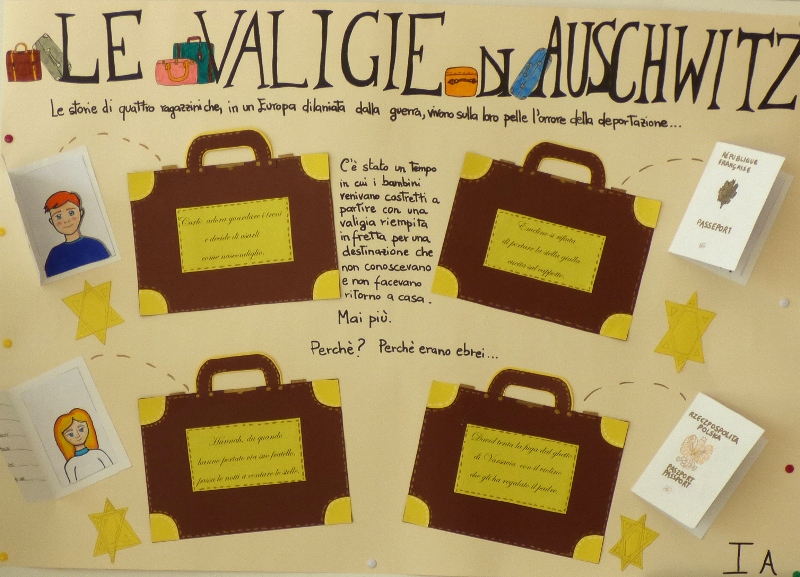 LE VALIGIE DI AUSCHWITZ
Le storie di quattro ragazzini che, in un Europa dilaniata dalla guerra, vivono sulla loro pelle l'orrore della deportazione...
Carlo adora guardare i treni
e decide di usarli
come nascondiglio.
C'è stato un tempo
in cui i bambini
venivano costretti a
partire con una
valigia riempita
in fretta per una
destinazione che
non conoscevano
e non facevano
ritorno a casa.
Mai più.
Perchè? Perchè erano ebrei...
Émeline si rifiuta
di portare la stella gialla
cucita sul cappotto.
RÉPUBLIQUE
FRANÇAISE
PASSEPORT
Hannah, da quando
hanno portato via suo fratello,
passa le notti a contare le stelle.
Dawid tenta la fuga dal ghetto
di Varsavia con il violino
che gli ha regalato il padre.
RZECZPOSPOLITA
POLSKA
PASZPORT
PASSPORT
I A